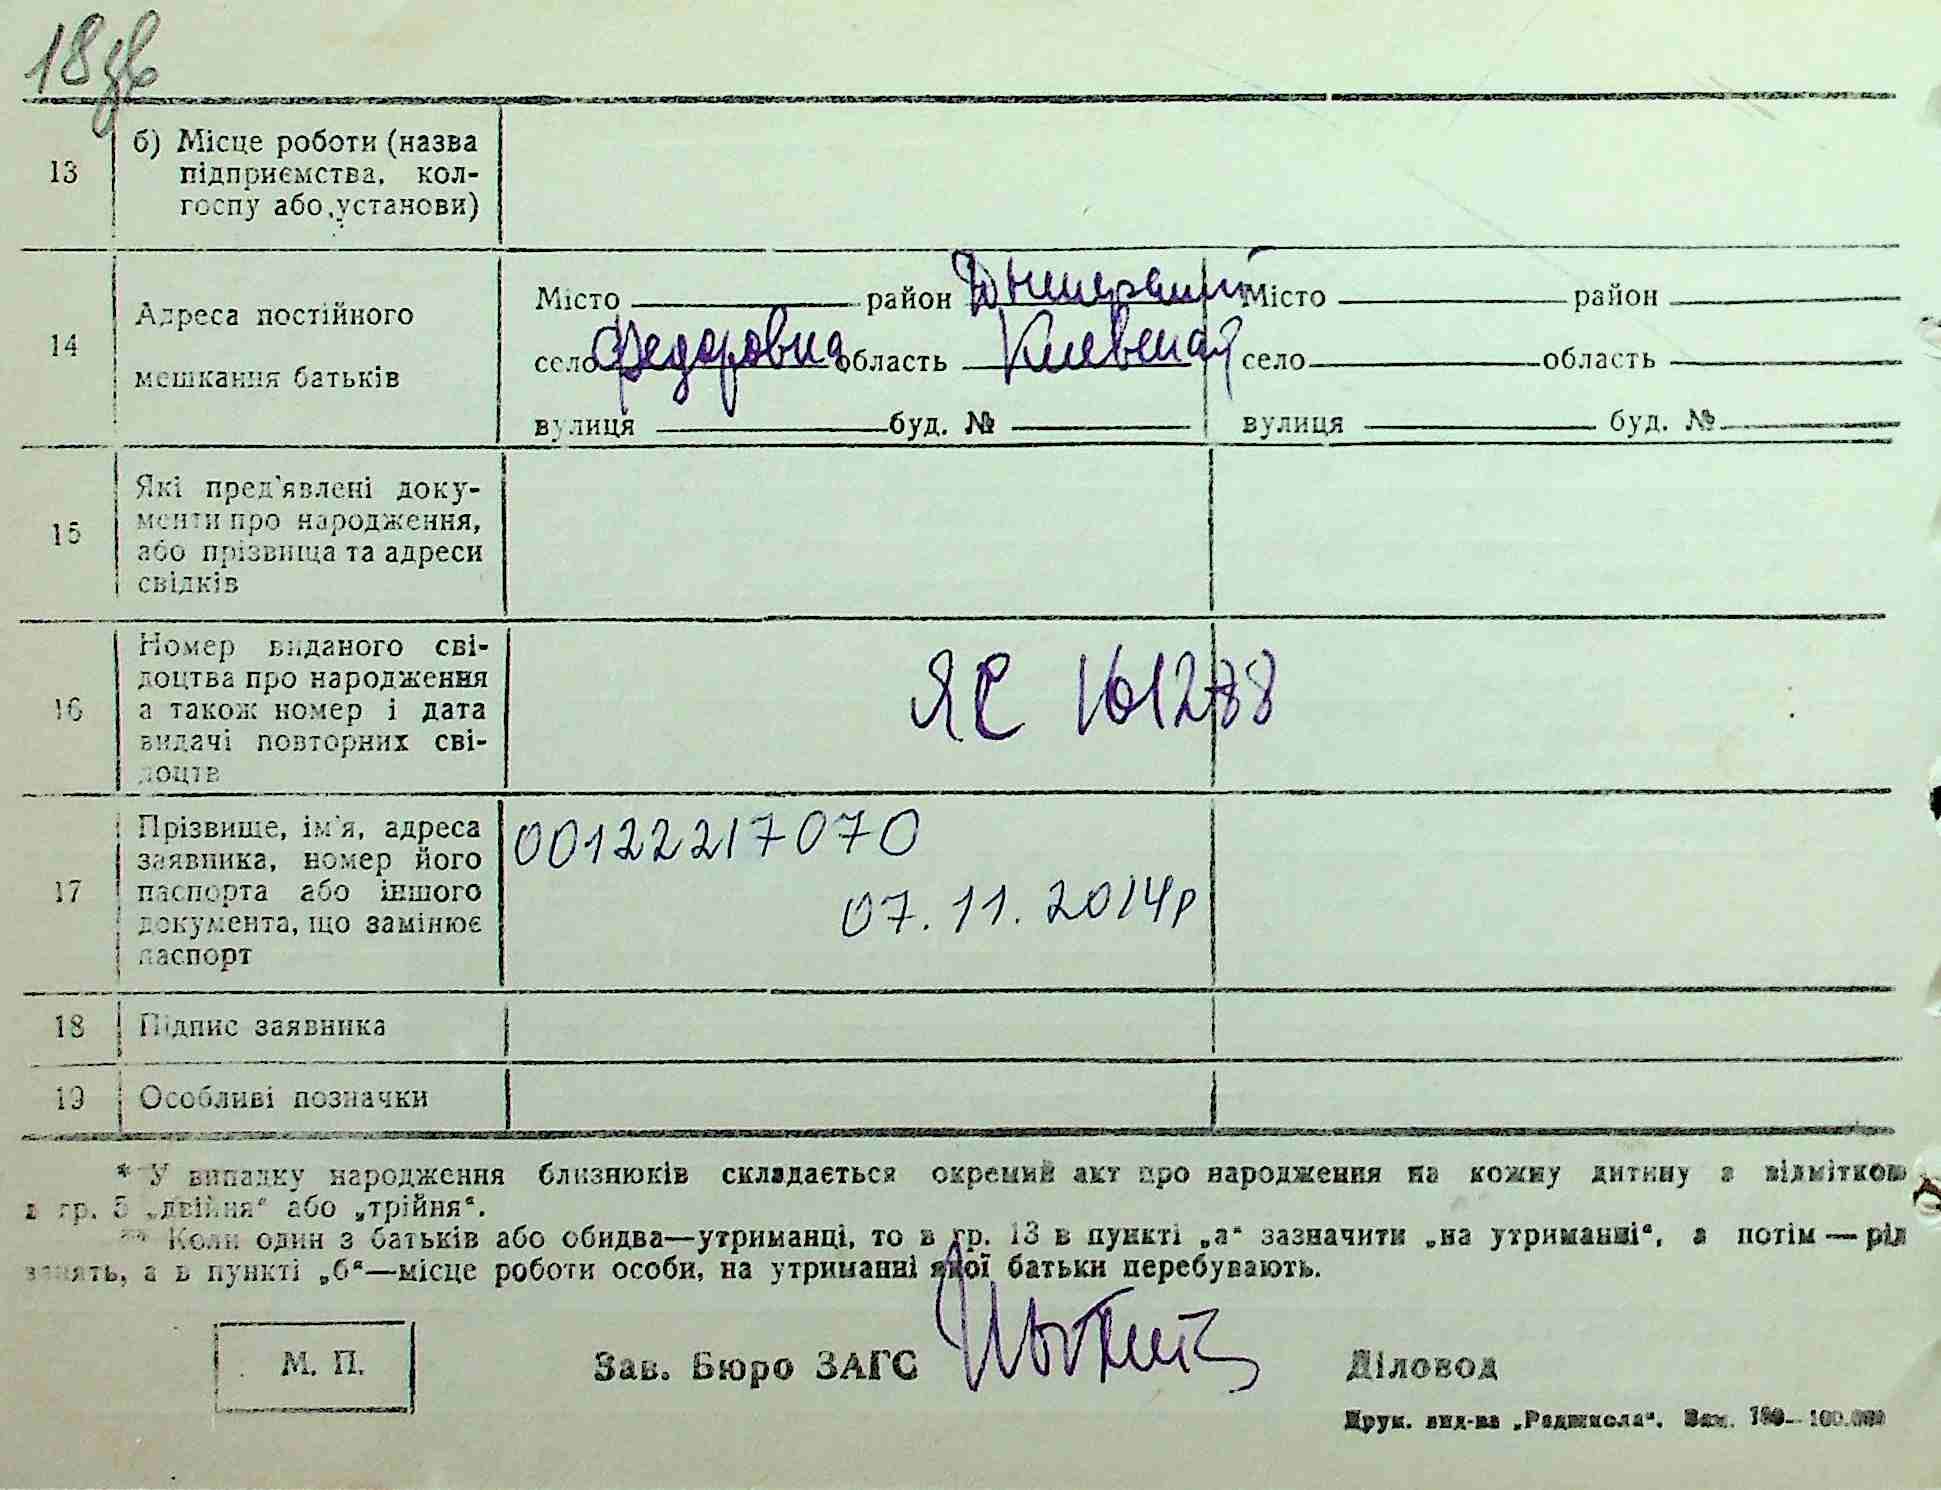 18зв
13 б) Місце роботи (назва
підприємства, кол-
госпу або установи)
14 Адреса постійного
мешкання батьків
Місто район Місто район
село Федоровка область Киевская село область
вулиця буд. № вулиця буд. №
15 Які пред'явлені доку-
менти про народження,
або прізвища та адреси
свідків
16 Номер виданого сві-
доцтва про народження
а також номер і дата
видачі повторних сві-
доцтв
ЯС 161288
17 Прізвище, ім'я, адреса
заявника, номер його
паспорта або іншого
документа, що замінює
паспорт
00122217070
07.11.2014р
18 Підпис заявника
19 Особливі позначки
* У випадку народження близнюків складається окремий акт про народження на кожну дитину з відміткою
в гр. 5 „двійня“ або „трійня“.
** Коли один з батьків або обидва—утриманці, то в гр. 13 в пункті „а“ зазначити „на утриманні“, а потім — рід
занять, а в пункті „б“—місце роботи особи, на утриманні якої батьки перебувають.
М. П. Зав. Бюро ЗАГС Діловод
Друк. вид-ва „Радшкола“. Зам. 100.000